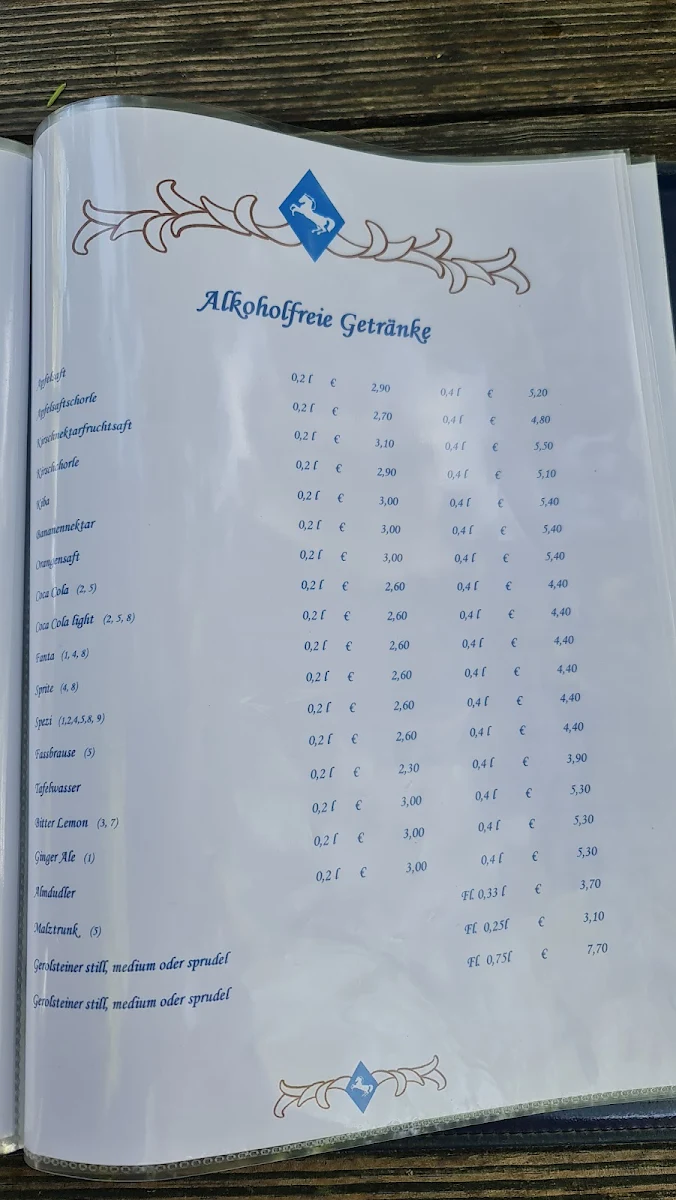 Alkoholfreie Getränke
Apfelsaft 0,2 l € 2,90 0,4 l € 5,20
Apfelsaftschorle 0,2 l € 2,70 0,4 l € 4,80
Kirschnektarfruchtsaft 0,2 l € 3,10 0,4 l € 5,50
Kirschschorle 0,2 l € 2,90 0,4 l € 5,10
Kiba 0,2 l € 3,00 0,4 l € 5,40
Bananennektar 0,2 l € 3,00 0,4 l € 5,40
Orangensaft 0,2 l € 3,00 0,4 l € 5,40
Coca Cola (2, 5) 0,2 l € 2,60 0,4 l € 4,40
Coca Cola light (2, 5, 8) 0,2 l € 2,60 0,4 l € 4,40
Fanta (1, 4, 8) 0,2 l € 2,60 0,4 l € 4,40
Sprite (4, 8) 0,2 l € 2,60 0,4 l € 4,40
Spezi (1,2,4,5,8, 9) 0,2 l € 2,60 0,4 l € 4,40
Fassbrause (5) 0,2 l € 2,60 0,4 l € 4,40
Tafelwasser 0,2 l € 2,30 0,4 l € 3,90
Bitter Lemon (3, 7) 0,2 l € 3,00 0,4 l € 5,30
Ginger Ale (1) 0,2 l € 3,00 0,4 l € 5,30
Almdudler 0,2 l € 3,00 0,4 l € 5,30
Malztrunk (5) Fl. 0,33 l € 3,70
Gerolsteiner still, medium oder sprudel Fl. 0,25l € 3,10
Gerolsteiner still, medium oder sprudel Fl. 0,75l € 7,70